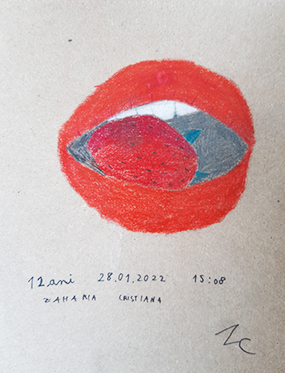 12 ani 28.01.2022 15:08
ZAHARIA CRISTIANA
ZC